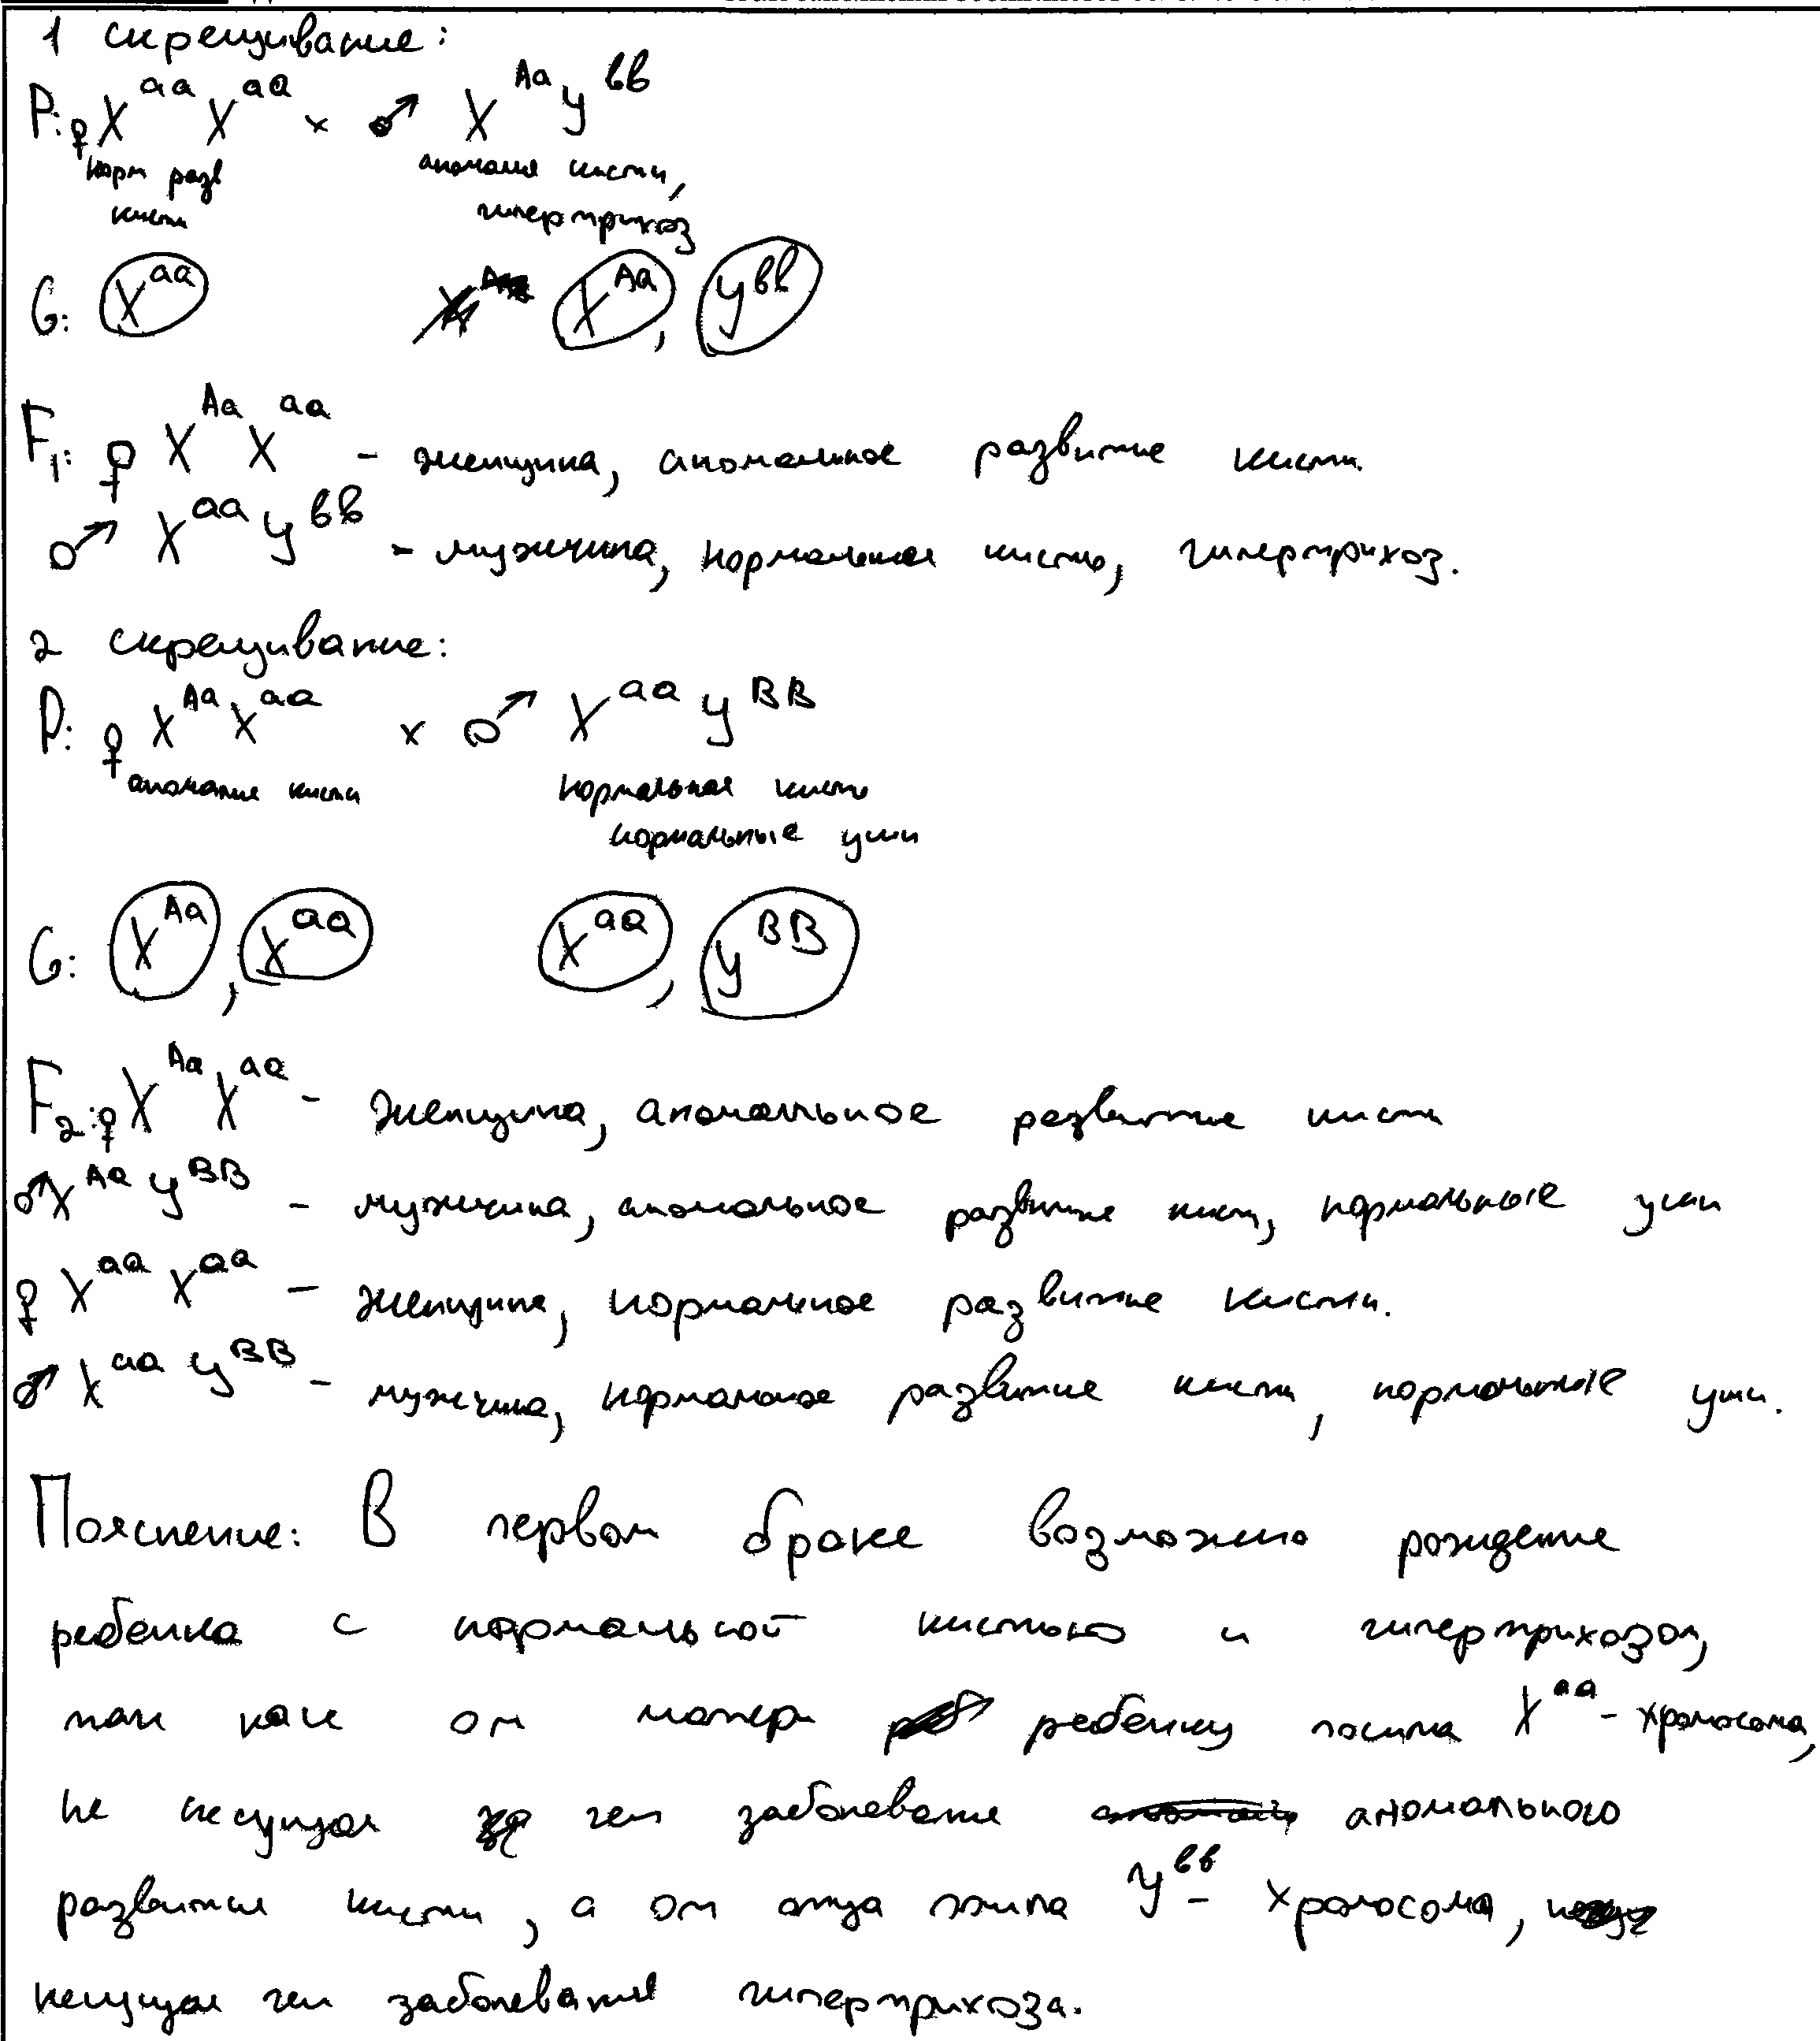 1 скрещивание:
P: ♀ X^aa X^aa × ♂ X^Aa y^вв
норм разв кисти аномалия кисти, гипертрихоз
G: X^aa X^Aa, y^вв
F1: ♀ X^Aa X^aa - женщина, аномальное развитие кисти.
♂ X^aa y^вв - мужчина, нормальная кисть, гипертрихоз.
2 скрещивание:
P: ♀ X^Aa X^aa × ♂ X^aa y^BB
аномалия кисти нормальная кисть
нормальные уши
G: X^Aa, X^aa X^aa, y^BB
F2: ♀ X^Aa X^aa - женщина, аномальное развитие кисти
♂ X^Aa y^BB - мужчина, аномальное развитие кисти, нормальные уши
♀ X^aa X^aa - женщина, нормальное развитие кисти.
♂ X^aa y^BB - мужчина, нормальное развитие кисти, нормальные уши.
Пояснение: В первом браке возможно рождение
ребенка с нормальной кистью и гипертрихозом,
так как от матери ребенку X^aa - хромосома,
не несущая ген заболевания аномального
развития кисти, а от отца y^вв - хромосома,
несущая ген заболевания гипертрихоза.